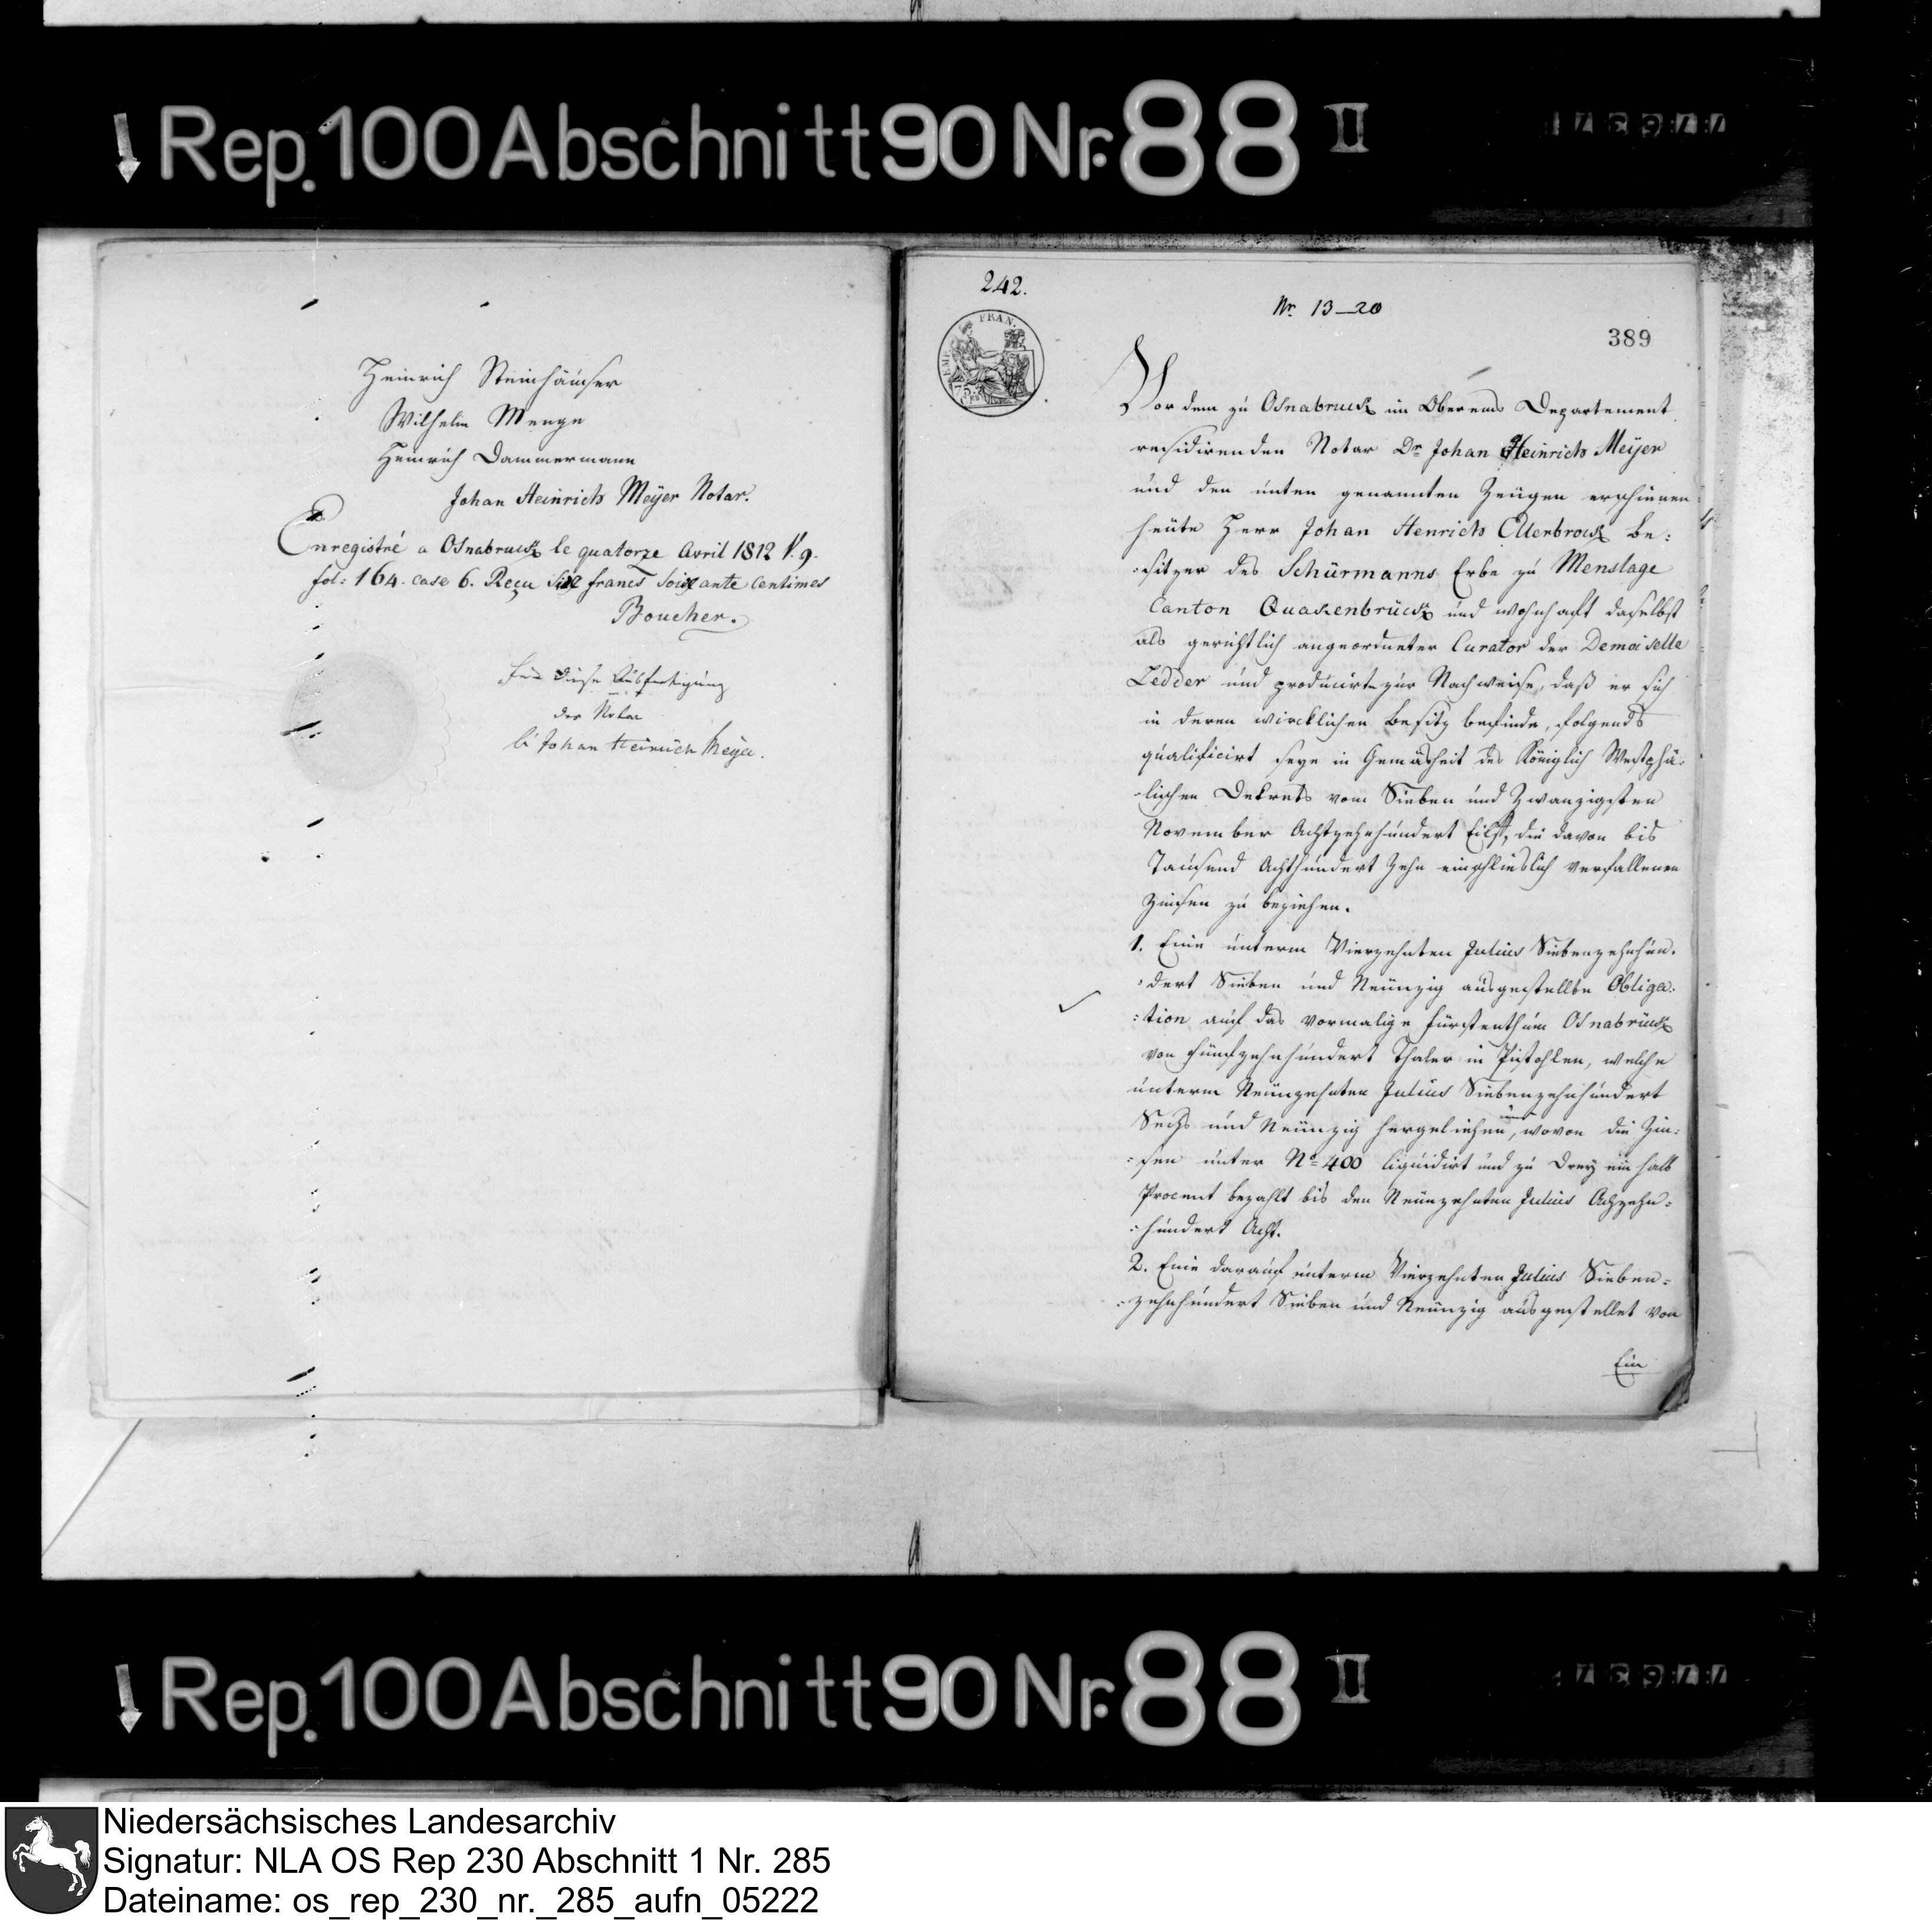 Rep. 100 Abschnitt 90 Nr. 88 II
Heinrich Steinhäuser
Wilhelm Menge
Heinrich Dammermann
Johan Heinrich Meÿer Notar.
Enregistré a Osnabruck le quatorze Avril 1812 V. 9.
fol: 164. case 6. Reçu six francs soixante Centimes
Boucher.
Für diese Ausfertigung
der Notar
Johan Heinrich Meÿer.
242.
Nr. 13_20
389
EMP. FRAN.
75
Vor dem zu Osnabruck im Oberems Departement
residirenden Notar Dr. Johan Heinrich Meÿer
und den unten genannten Zeugen erschienen
heute Herr Johan Henrich Ellerbrock Be:
:sitzer des Schürmanns Erbe zu Menslage
Canton Quakenbrück und wohnhaft daselbst
als gerichtlich angeordneter Curator der Demoiselle
Ledder und producirte zur Nachweise, daß er sich
in deren wircklichen Besitz befinde, folgends
qualificirt seye in Gemäsheit des Königlich Westphä:
:lischen Dekrets vom Sieben und Zwanzigsten
November Achtzehnhundert Eilf, die davon bis
Tausend Achthundert Zehn einschlieslich verfallenen
Zinsen zu beziehen.
1. Eine unterm Vierzehnten Julius Siebenzehnhun:
:dert Sieben und Neunzig ausgestellte Obliga:
:tion auf das vormalige Fürstenthum Osnabrück
von Fünfzehnhundert Thaler in Pistohlen, welche
unterm Neunzehnten Julius Siebenzehnhundert
Sechs und Neunzig hergeliehen, wovon die Zin:
:sen unter No. 400 liquidirt und zu Drey ein halb
Procent bezahlt bis den Neunzehnten Julius Achzehn:
:hundert Acht.
2. Eine darauf unterm Vierzehnten Julius Sieben:
:zehnhundert Sieben und Neunzig ausgestellet von
Ein
Rep. 100 Abschnitt 90 Nr. 88 II
Niedersächsisches Landesarchiv
Signatur: NLA OS Rep 230 Abschnitt 1 Nr. 285
Dateiname: os_rep_230_nr._285_aufn_05222